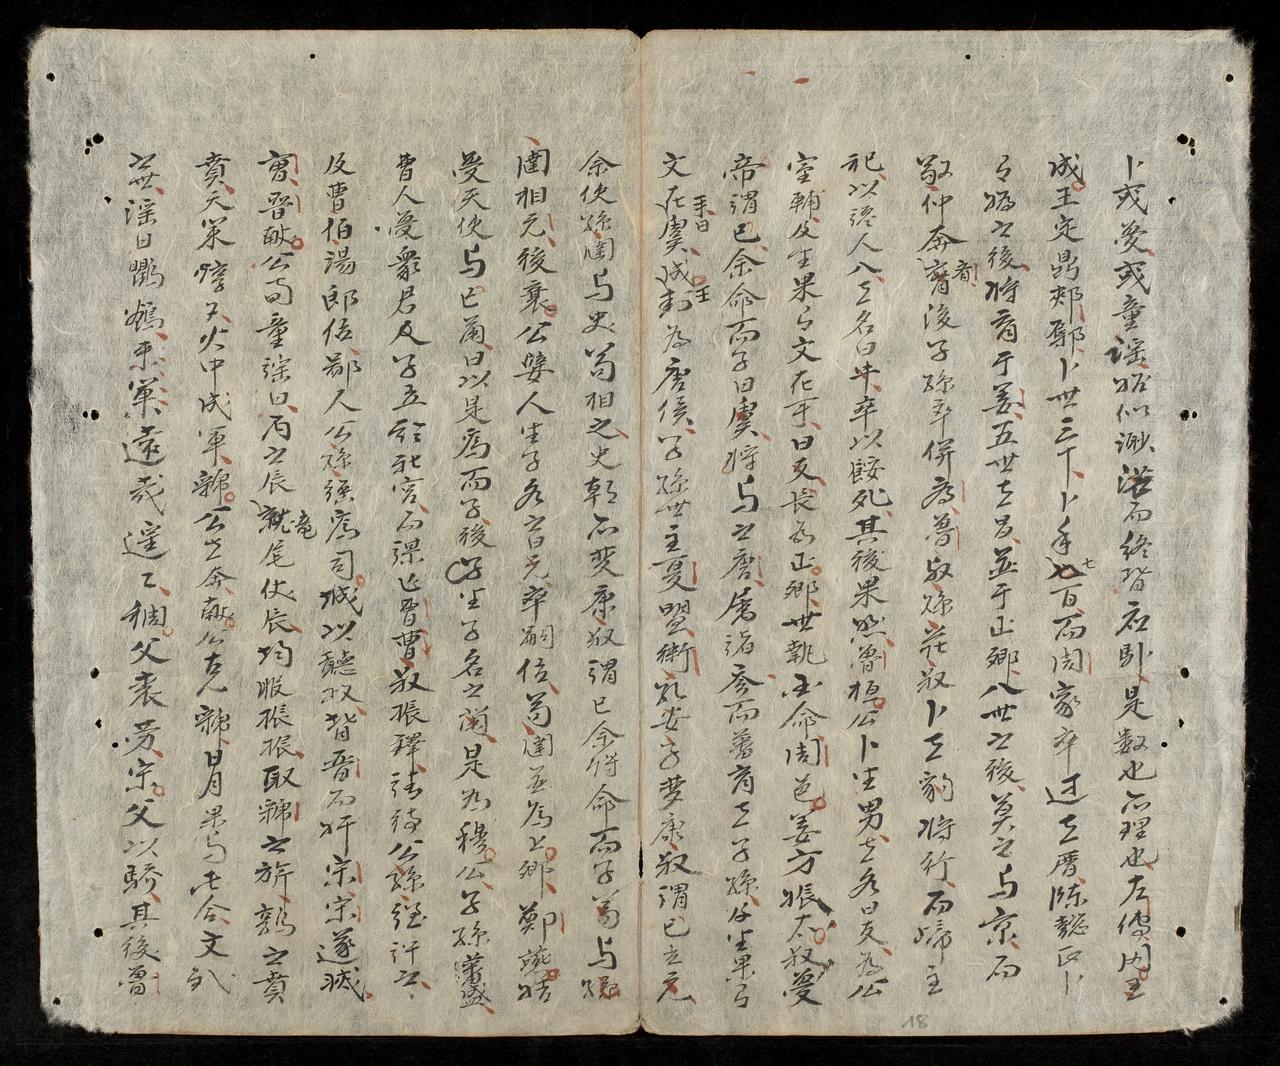 卜或夢或童謠㫼似渺㳽而終皆応卦是數也亦理也左傳周王
成王定鼎郟鄏卜世三十卜年七百而周家卒过之曆陳懿氏卜
曰媯之後將育于姜五世之昌並于正卿八世之後莫之与京而
敬仲奔齊後子孫卒併為魯叔孫莊叔卜之豹將行而歸主
祀以讒人入之名曰牛卒以餒死其後果然魯桓公卜生男之名曰友為公
室輔及生果曰文在手曰友長為正卿世執国命周邑姜方脤太叔夢
帝謂已余命而子曰虞將与之唐屬諸參而蕃育之子孫及生果曰
文在虞手曰成王封為唐侯子孫世主夏盟衛孔安子夢康叔謂已立元
余使孫圉与史苟相之史朝亦夢康叔謂已余將命而子苟与孫
圉相元後襄公嬖人生子名之曰元卒嗣位苟圉並為上卿鄭燕姞
夢天使与己蘭曰以是為而子後生子名之蘭是為穆公子孫蕃盛
曹人夢衆君及子立於社宮而謀亡曹曹叔振鐸請待公孫彊許之
及曹伯湯郎位鄙人公孫彊為司城以聽政背晋而奸宋宋遂滅
曹晋献公句童謠曰丙之辰龍尾伏辰均服振振取虢之旂鶉之賁
賁天策焞又火中成軍虢公其奔献公克虢日月果与此合文武
之世謠曰鸜鵒來巢遠哉遥々稠父喪劳宋父以驕其後魯